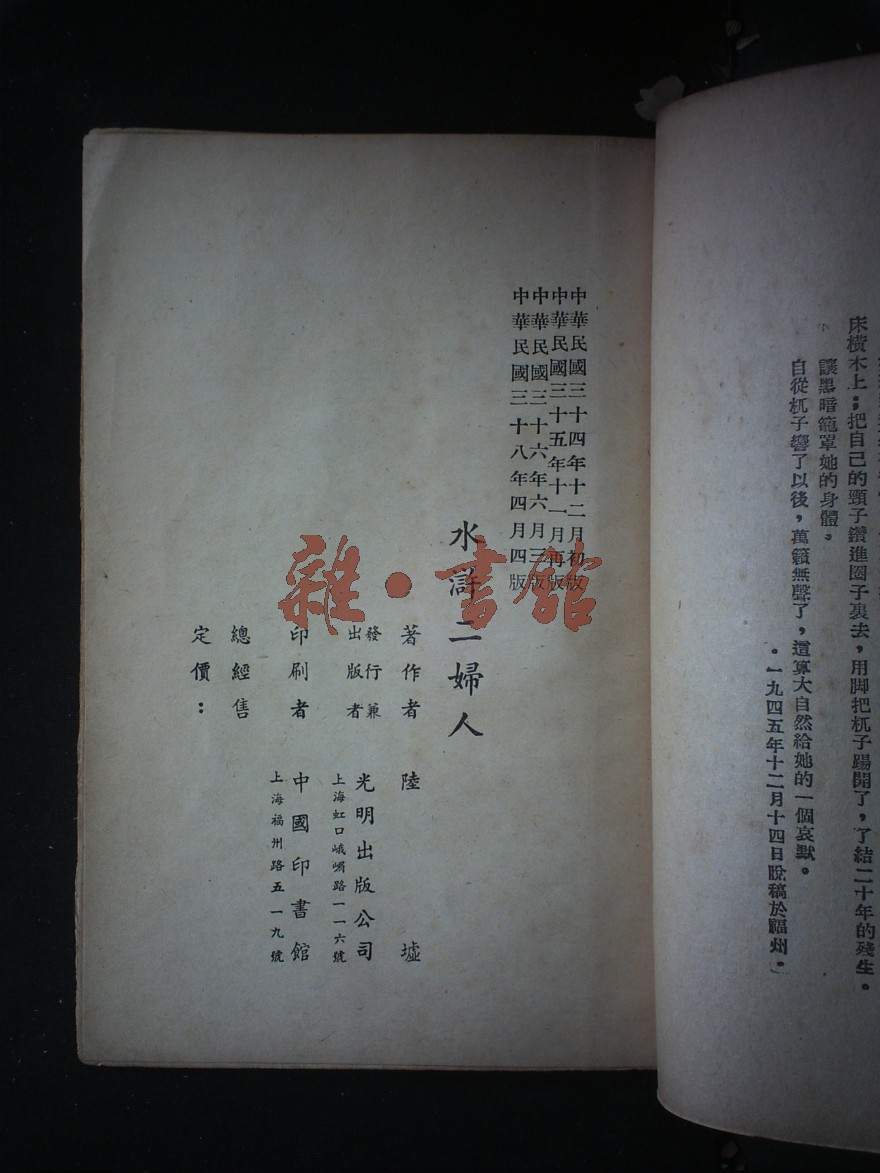 床橫木上；把自己的頸子鑽進圈子裏去，用脚把杌子踢開了，了結二十年的殘生。
讓黑暗籠罩她的身體。
自從杌子響了以後，萬籟無聲了，這算大自然給她的一個哀默。
。一九四五年十二月十四日脫稿於福州。
中華民國三十四年十二月初版
中華民國三十五年十一月再版
中華民國三十六年六月三版
中華民國三十八年四月四版
水滸二婦人
著作者 陸墟
發行兼出版者 光明出版公司
上海虹口峨嵋路一一六號
印刷者 中國印書館
上海福州路五一九號
總經售
定價：
雜·書館